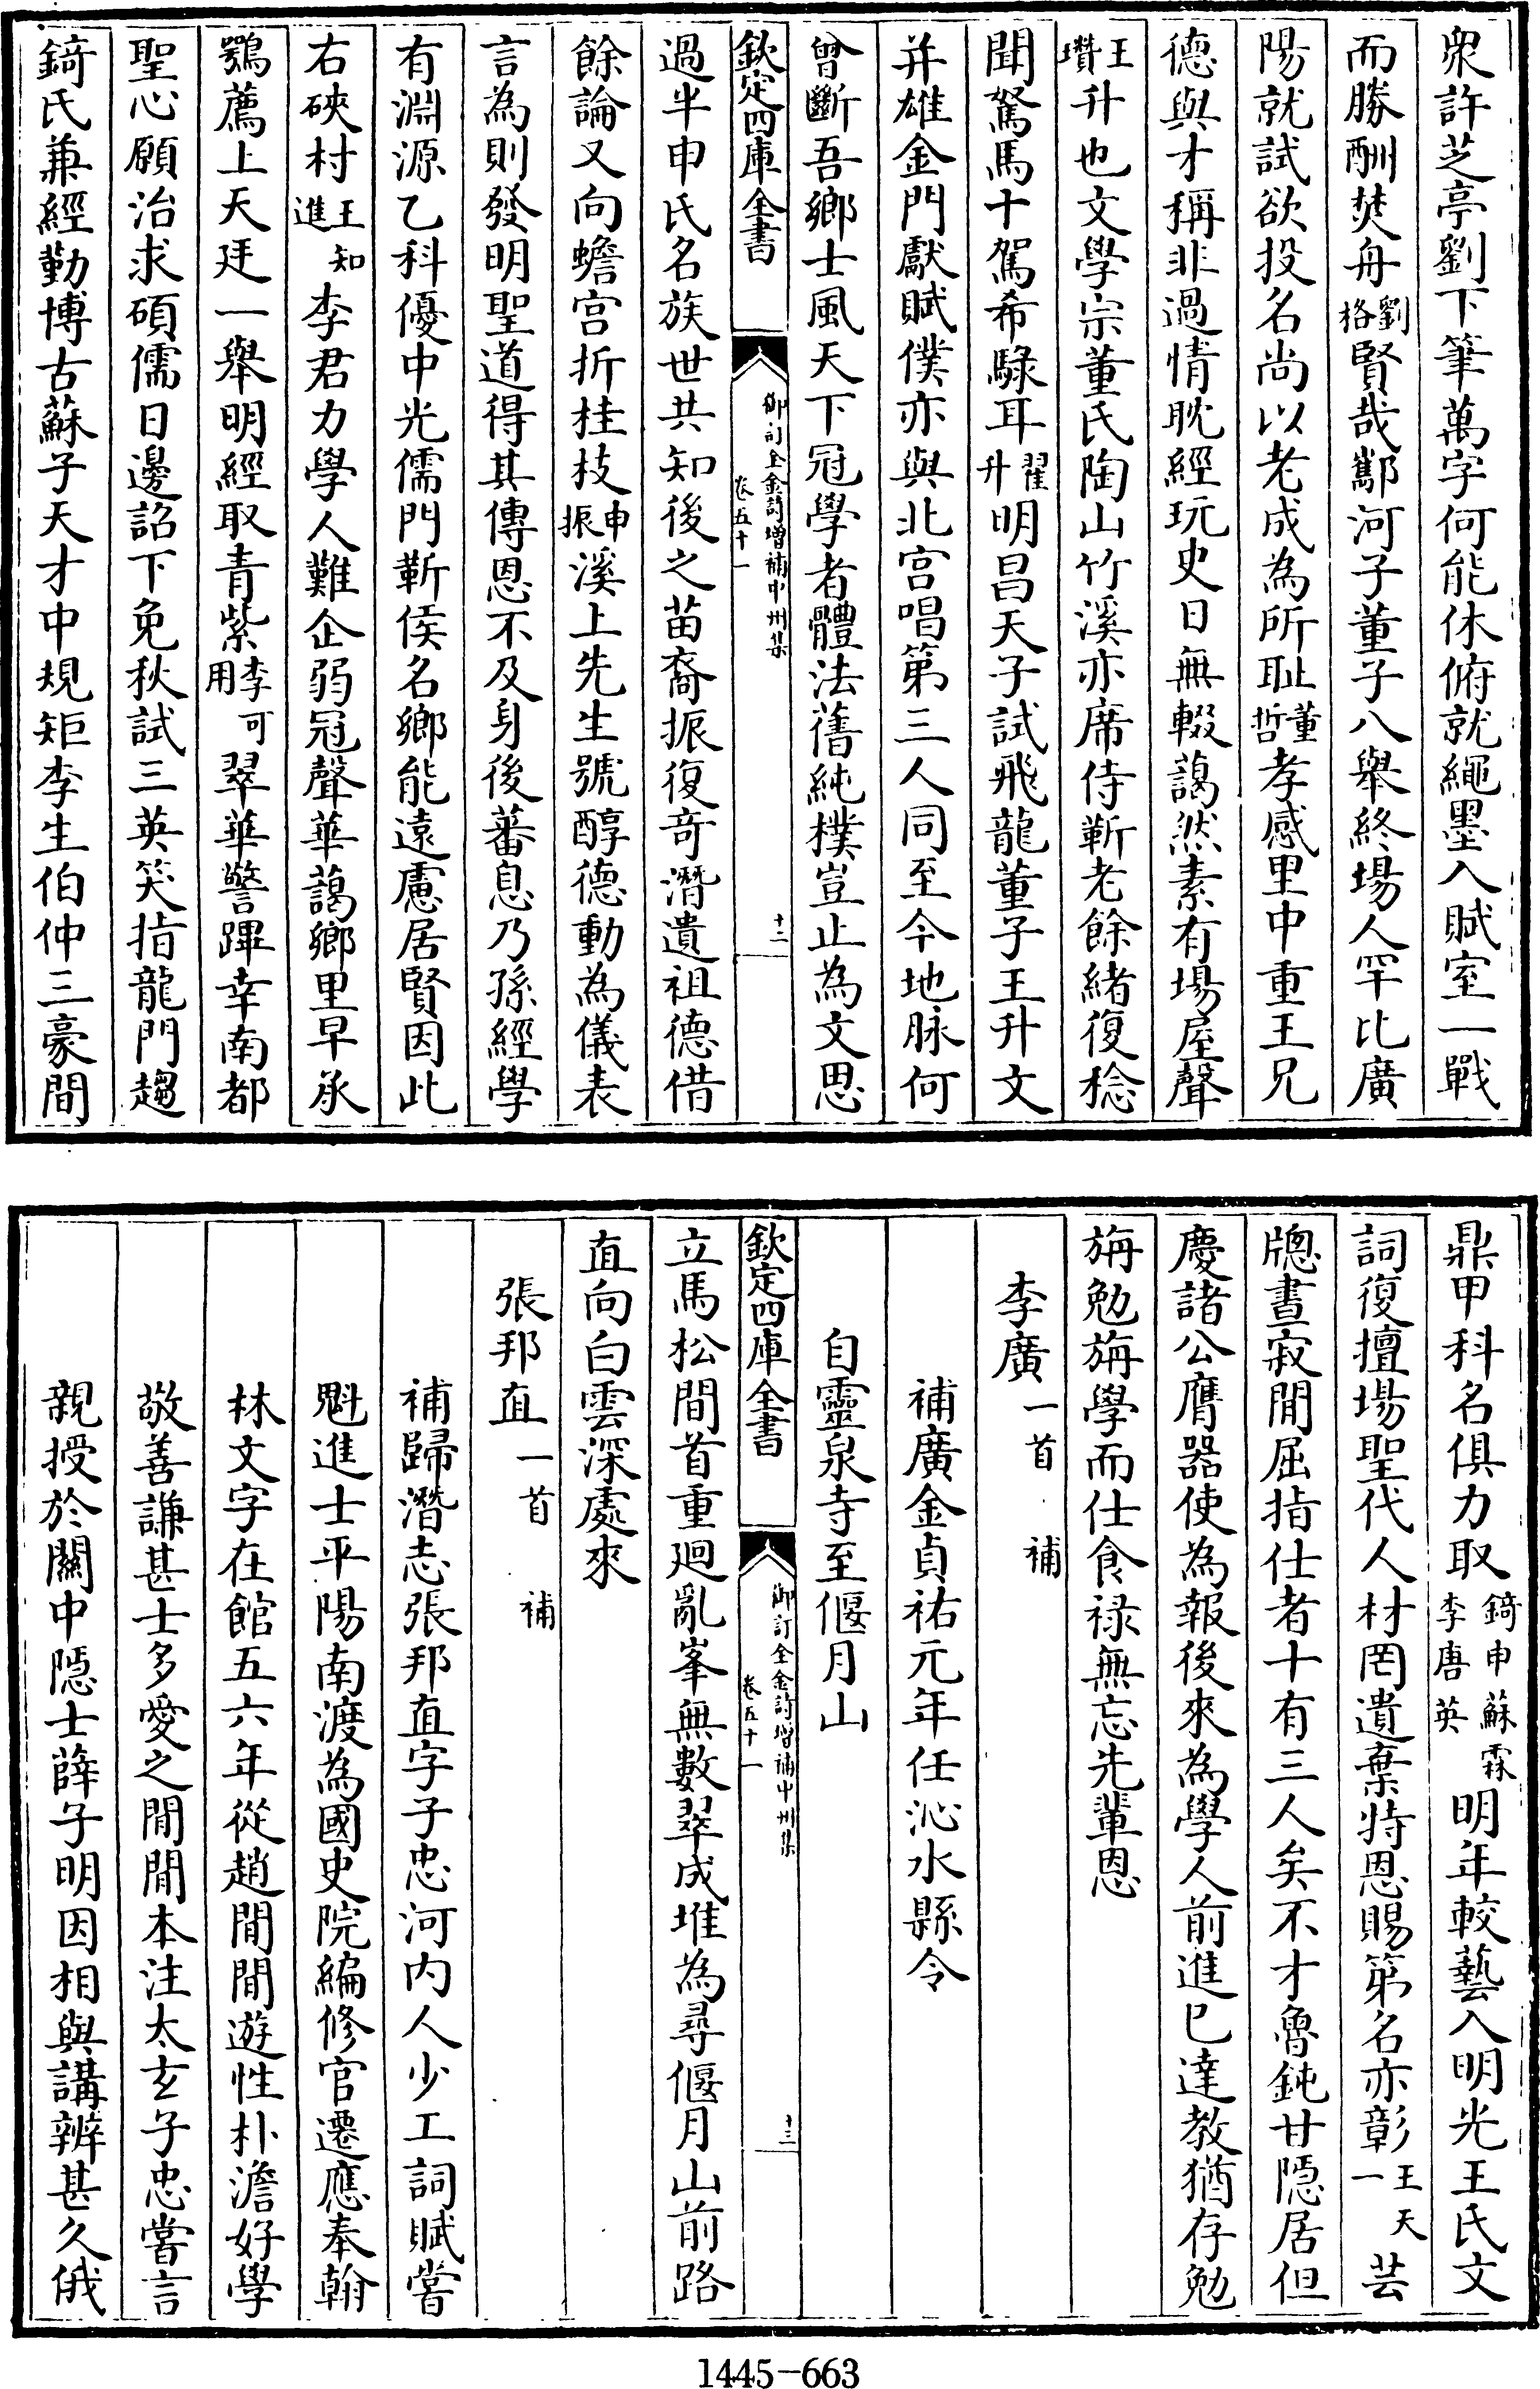 衆許芝亭劉下筆萬字何能休俯就繩墨入賦室一戰
而勝酬焚舟劉格賢哉鄰河子董子八舉終場人罕比廣
陽就試欲投名尚以老成為所耻董哲孝感里中重王兄
德與才稱非過情耽經玩史日無輟藹然素有場屋聲
王瓚升也文學宗董氏陶山竹溪亦席侍靳老餘緒復稔
聞駑馬十駕希騄耳翟升明昌天子試飛龍董子王升文
并雄金門獻賦僕亦與北宫唱第三人同至今地脉何
曾斷吾鄉士風天下冠學者體法舊純樸豈止為文思
欽定四庫全書 御訂全金詩増補中州集 卷五十一 十二
過半申氏名族世共知後之苗裔振復奇潛遺祖德借
餘論又向蟾宫折桂枝申振溪上先生號醇德動為儀表
言為則發明聖道得其傳恩不及身後蕃息乃孫經學
有淵源乙科優中光儒門靳侯名鄉能遠慮居賢因此
右硤村王知進李君力學人難企弱冠聲華藹鄉里早承
鶚薦上天廷一舉明經取青紫李可用翠華警蹕幸南都
聖心願治求碩儒日邊詔下免秋試三英笑指龍門趨
錡氏兼經勤博古蘇子天才中規矩李生伯仲三豪間
鼎甲科名俱力取錡申蘇霖李唐英明年較藝入明光王氏文
詞復擅場聖代人材罔遺棄特恩賜第名亦彰王天一芸
牎晝寂閒屈指仕者十有三人矣不才魯鈍甘隠居但
慶諸公膺器使為報後來為學人前進已達教猶存勉
旃勉旃學而仕食禄無忘先輩恩
李廣一首 補
補廣金貞祐元年任沁水縣令
自靈泉寺至偃月山
欽定四庫全書 御訂全金詩増補中州集 卷五十一 十三
立馬松間首重廻亂峯無數翠成堆為尋偃月山前路
直向白雲深處來
張邦直一首 補
補歸潛志張邦直字子忠河内人少工詞賦嘗
魁進士平陽南渡為國史院編修官遷應奉翰
林文字在館五六年從趙閒閒遊性朴澹好學
敬善謙甚士多愛之閒閒本注太玄子忠嘗言
親授於關中隠士薛子明因相與講辨甚久俄
1445-663